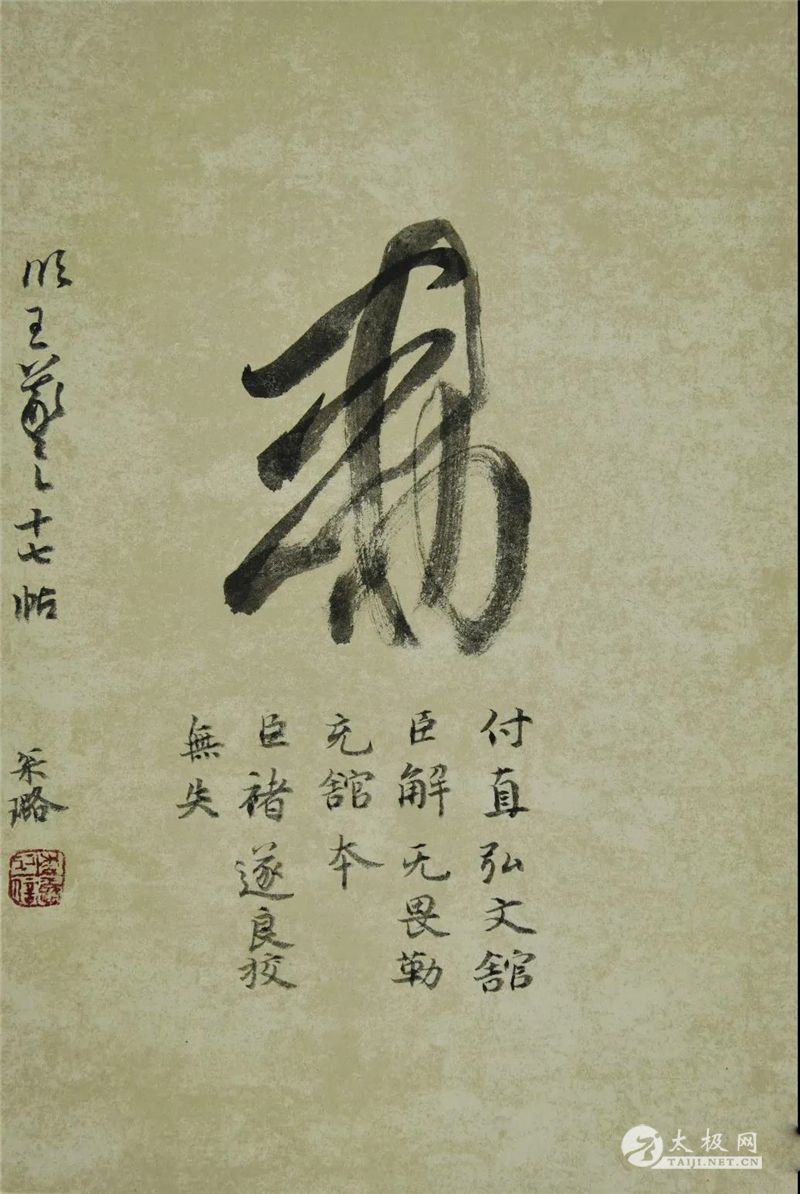 敕
付直弘文館
臣解无畏勒
充館本
臣褚遂良挍
無失
临王羲之十七帖
采璐
太极网
TAIJI.NET.CN